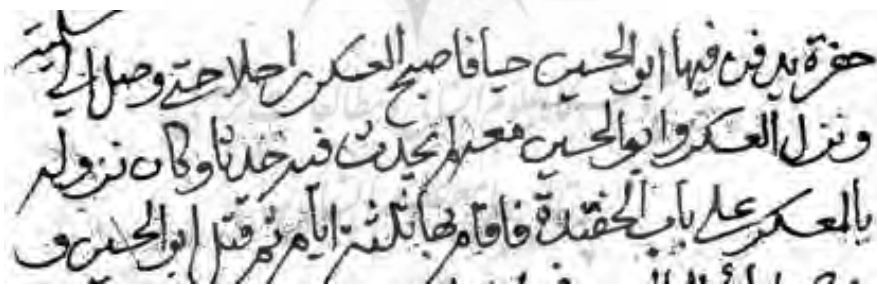 حفرة يدفن فيها ابو الحسين حيا فاصبح العسكر راحلا حتى وصل الى سلمية
ونزل العسكر وابو الحسين معه لم يحدث فيه حدثا وكان نزوله
بالعسكر على باب فاقام بها ثلثة ايام ثم قتل ابو الحسين و